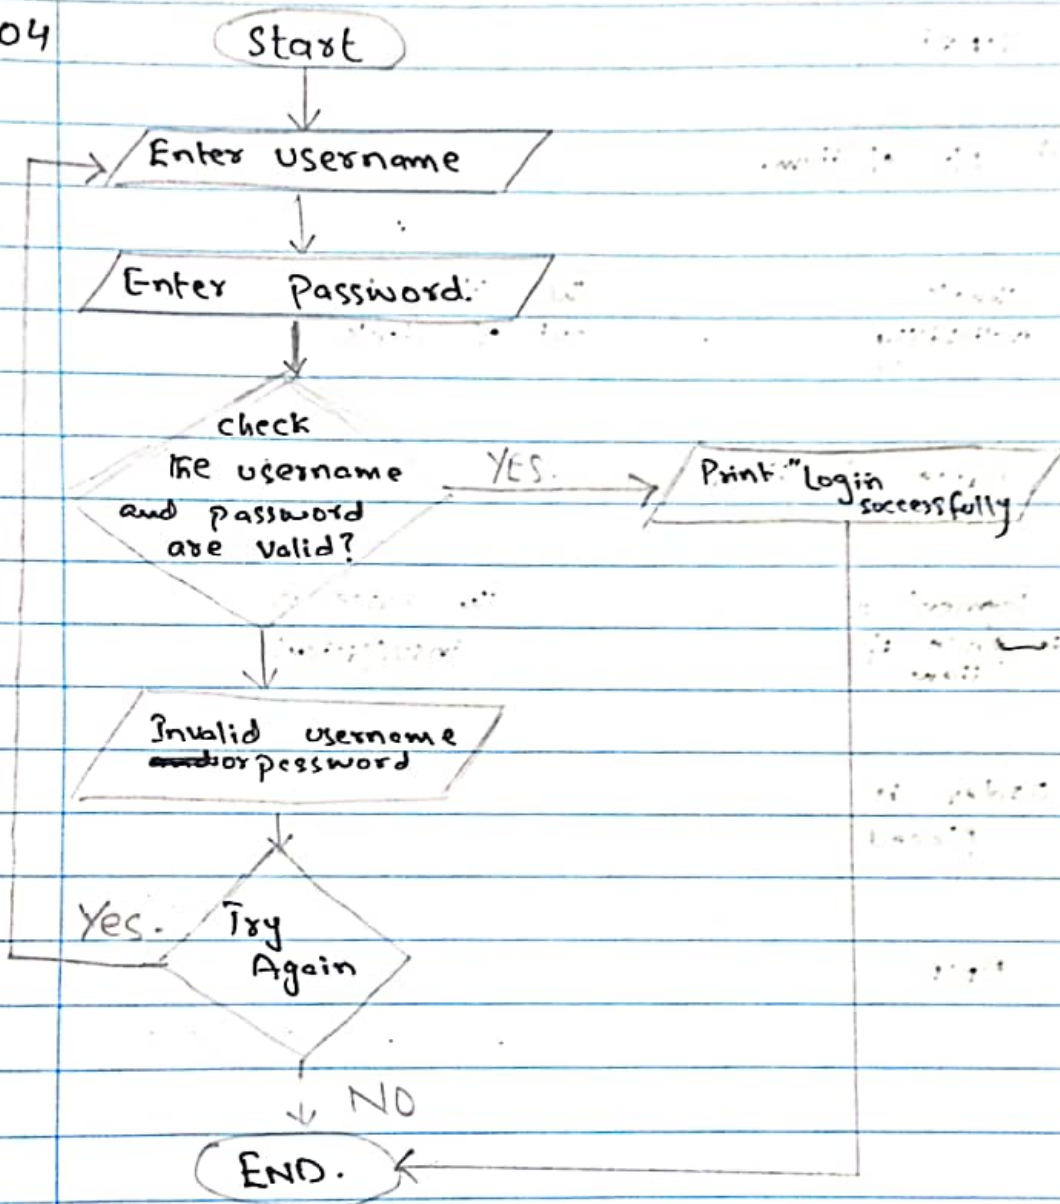 04
Start
Enter username
Enter Password.
check
the username
and password
are valid?
YES.
Print "Login
successfully
Invalid username
or pessword
Yes.
Try
Again
NO
END.